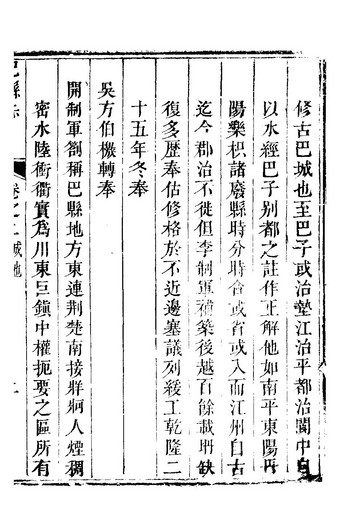 修古巴城也至巴子或治墊江治平都治閬中自
以水經巴子別都之註作正解他如南平東陽丹
陽樂枳諸廢縣時分時合或省或入而江州自古
迄今郡治不徙但李制軍補築後越百餘載坍缺
復多歷奉估修格於不近邊塞議列緩工乾隆二
十五年冬奉
吳方伯檄轉奉
開制軍劄稱巴縣地方東連荆楚南接牂牁人煙稠
密水陸衝衢實爲川東巨鎮中權扼要之區所有
巴縣志 卷之二 城池